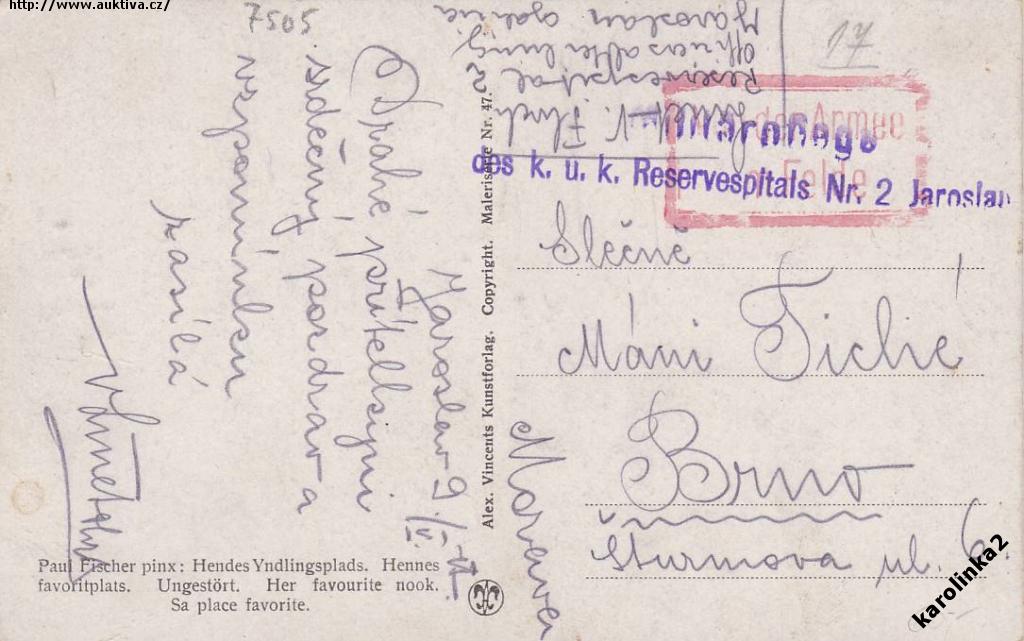 http://www.auktiva.cz/
7505
17
Jaroslau galizien
Offiziersabteilung
Reservespital 2
V.
der Armee
Felde
des k. u. k. Reservespitals Nr. 2 Jaroslau
Jaroslav 9/
Drahé přítelkyni
srdečný pozdrav a
vzpomínku
zasílá
Alex. Vincents Kunstforlag. Copyright. Maleriserie Nr. 47.
Slečně
Máni Tiché
Brno
Sturmova ul. 6.
Paul Fischer pinx: Hendes Yndlingsplads. Hennes
favoritplats. Ungestört. Her favourite nook.
Sa place favorite.
karolinka2